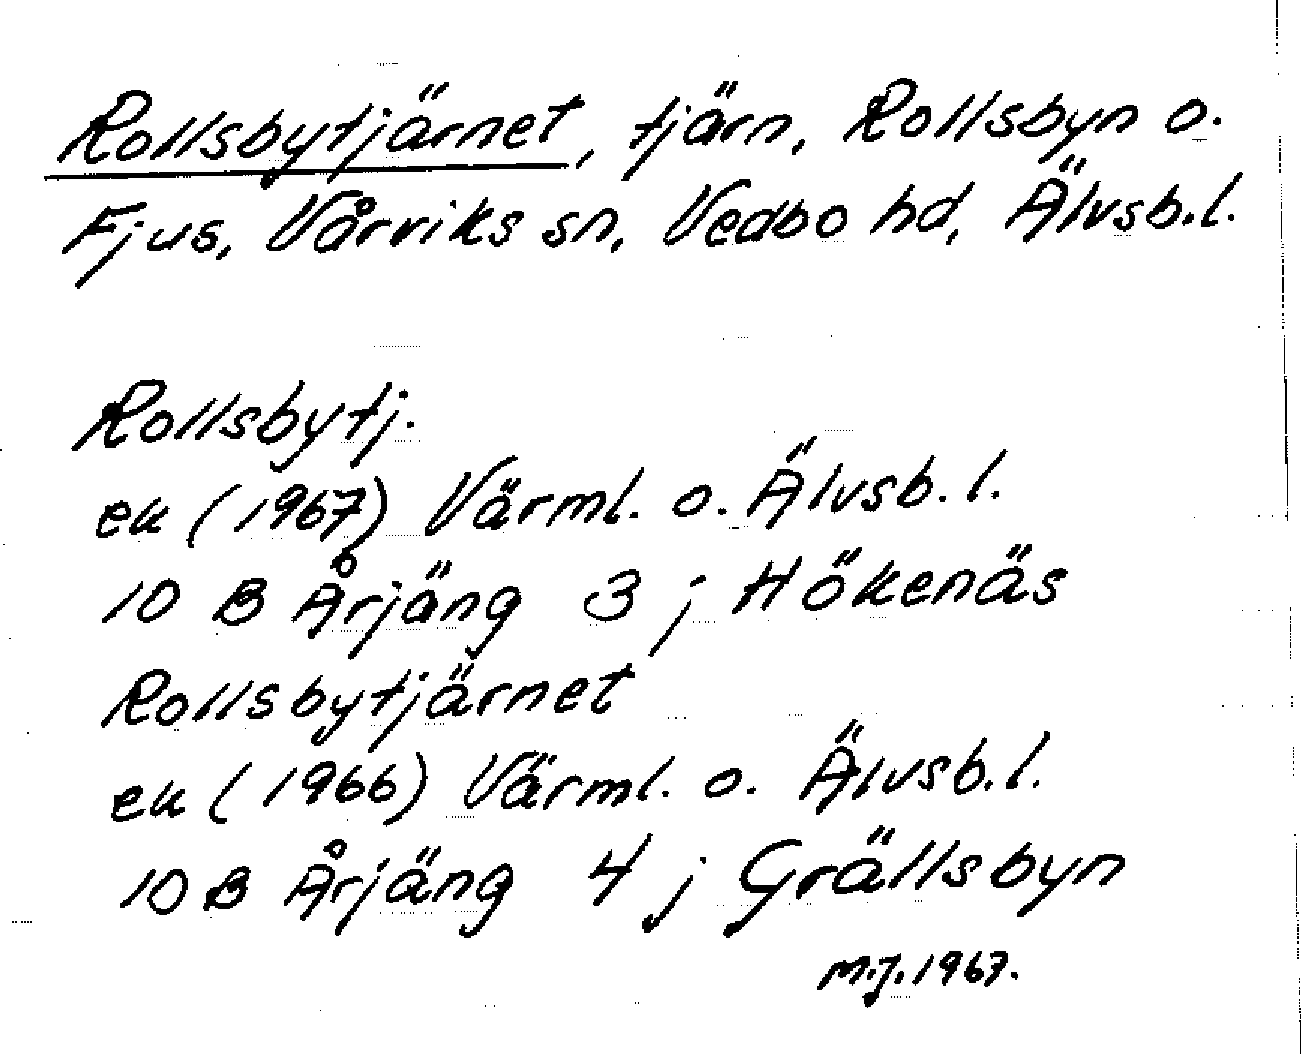 Rollsbytjärnet, tjärn, Rollsbyn o.
Fjus, Vårviks sn, Vedbo hd, Älvsb.l.
Rollsbytj.
ek (1967) Värml. o. Älvsb. l.
10 B Årjäng 3 j Hökenäs
Rollsbytjärnet
ek (1966) Värml. o. Älvsb.l.
10 B Årjäng 4 j Grällsbyn
M.J. 1967.